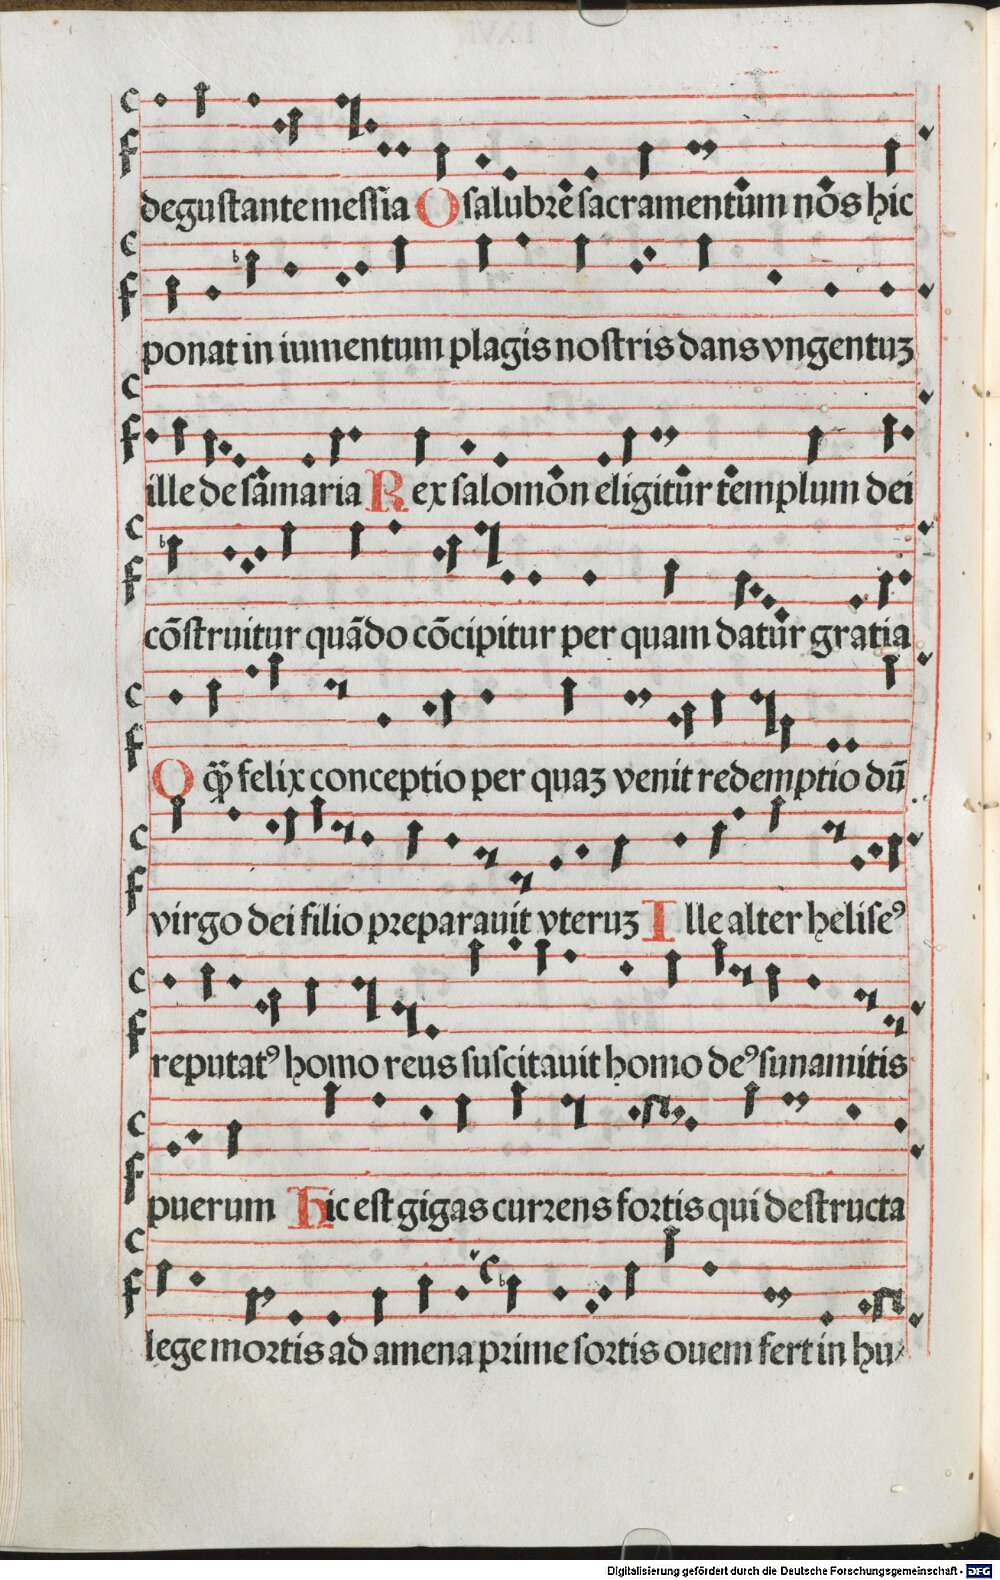 degustante messia O salubrē sacramentūm nōs hic
ponat in iumentum plagis nostris dans vngentuꝫ
ille de sāmaria Rex salomōn eligitūr tēmplum dei
cōstruitur quādo cōcipitur per quam datūr gratia
O q̄ȝ felix conceptio per quaꝫ venit redemptio dū
virgo dei filio preparauit vteruꝫ Ille alter heliseꝰ
reputatꝰ homo reus suscitauit homo deꝰ sunamitis
puerum Hic est gigas currens fortis qui destructa
lege mortis ad amena prime sortis ouem fert in hu⸗
Digitalisierung gefördert durch die Deutsche Forschungsgemeinschaft - DFG